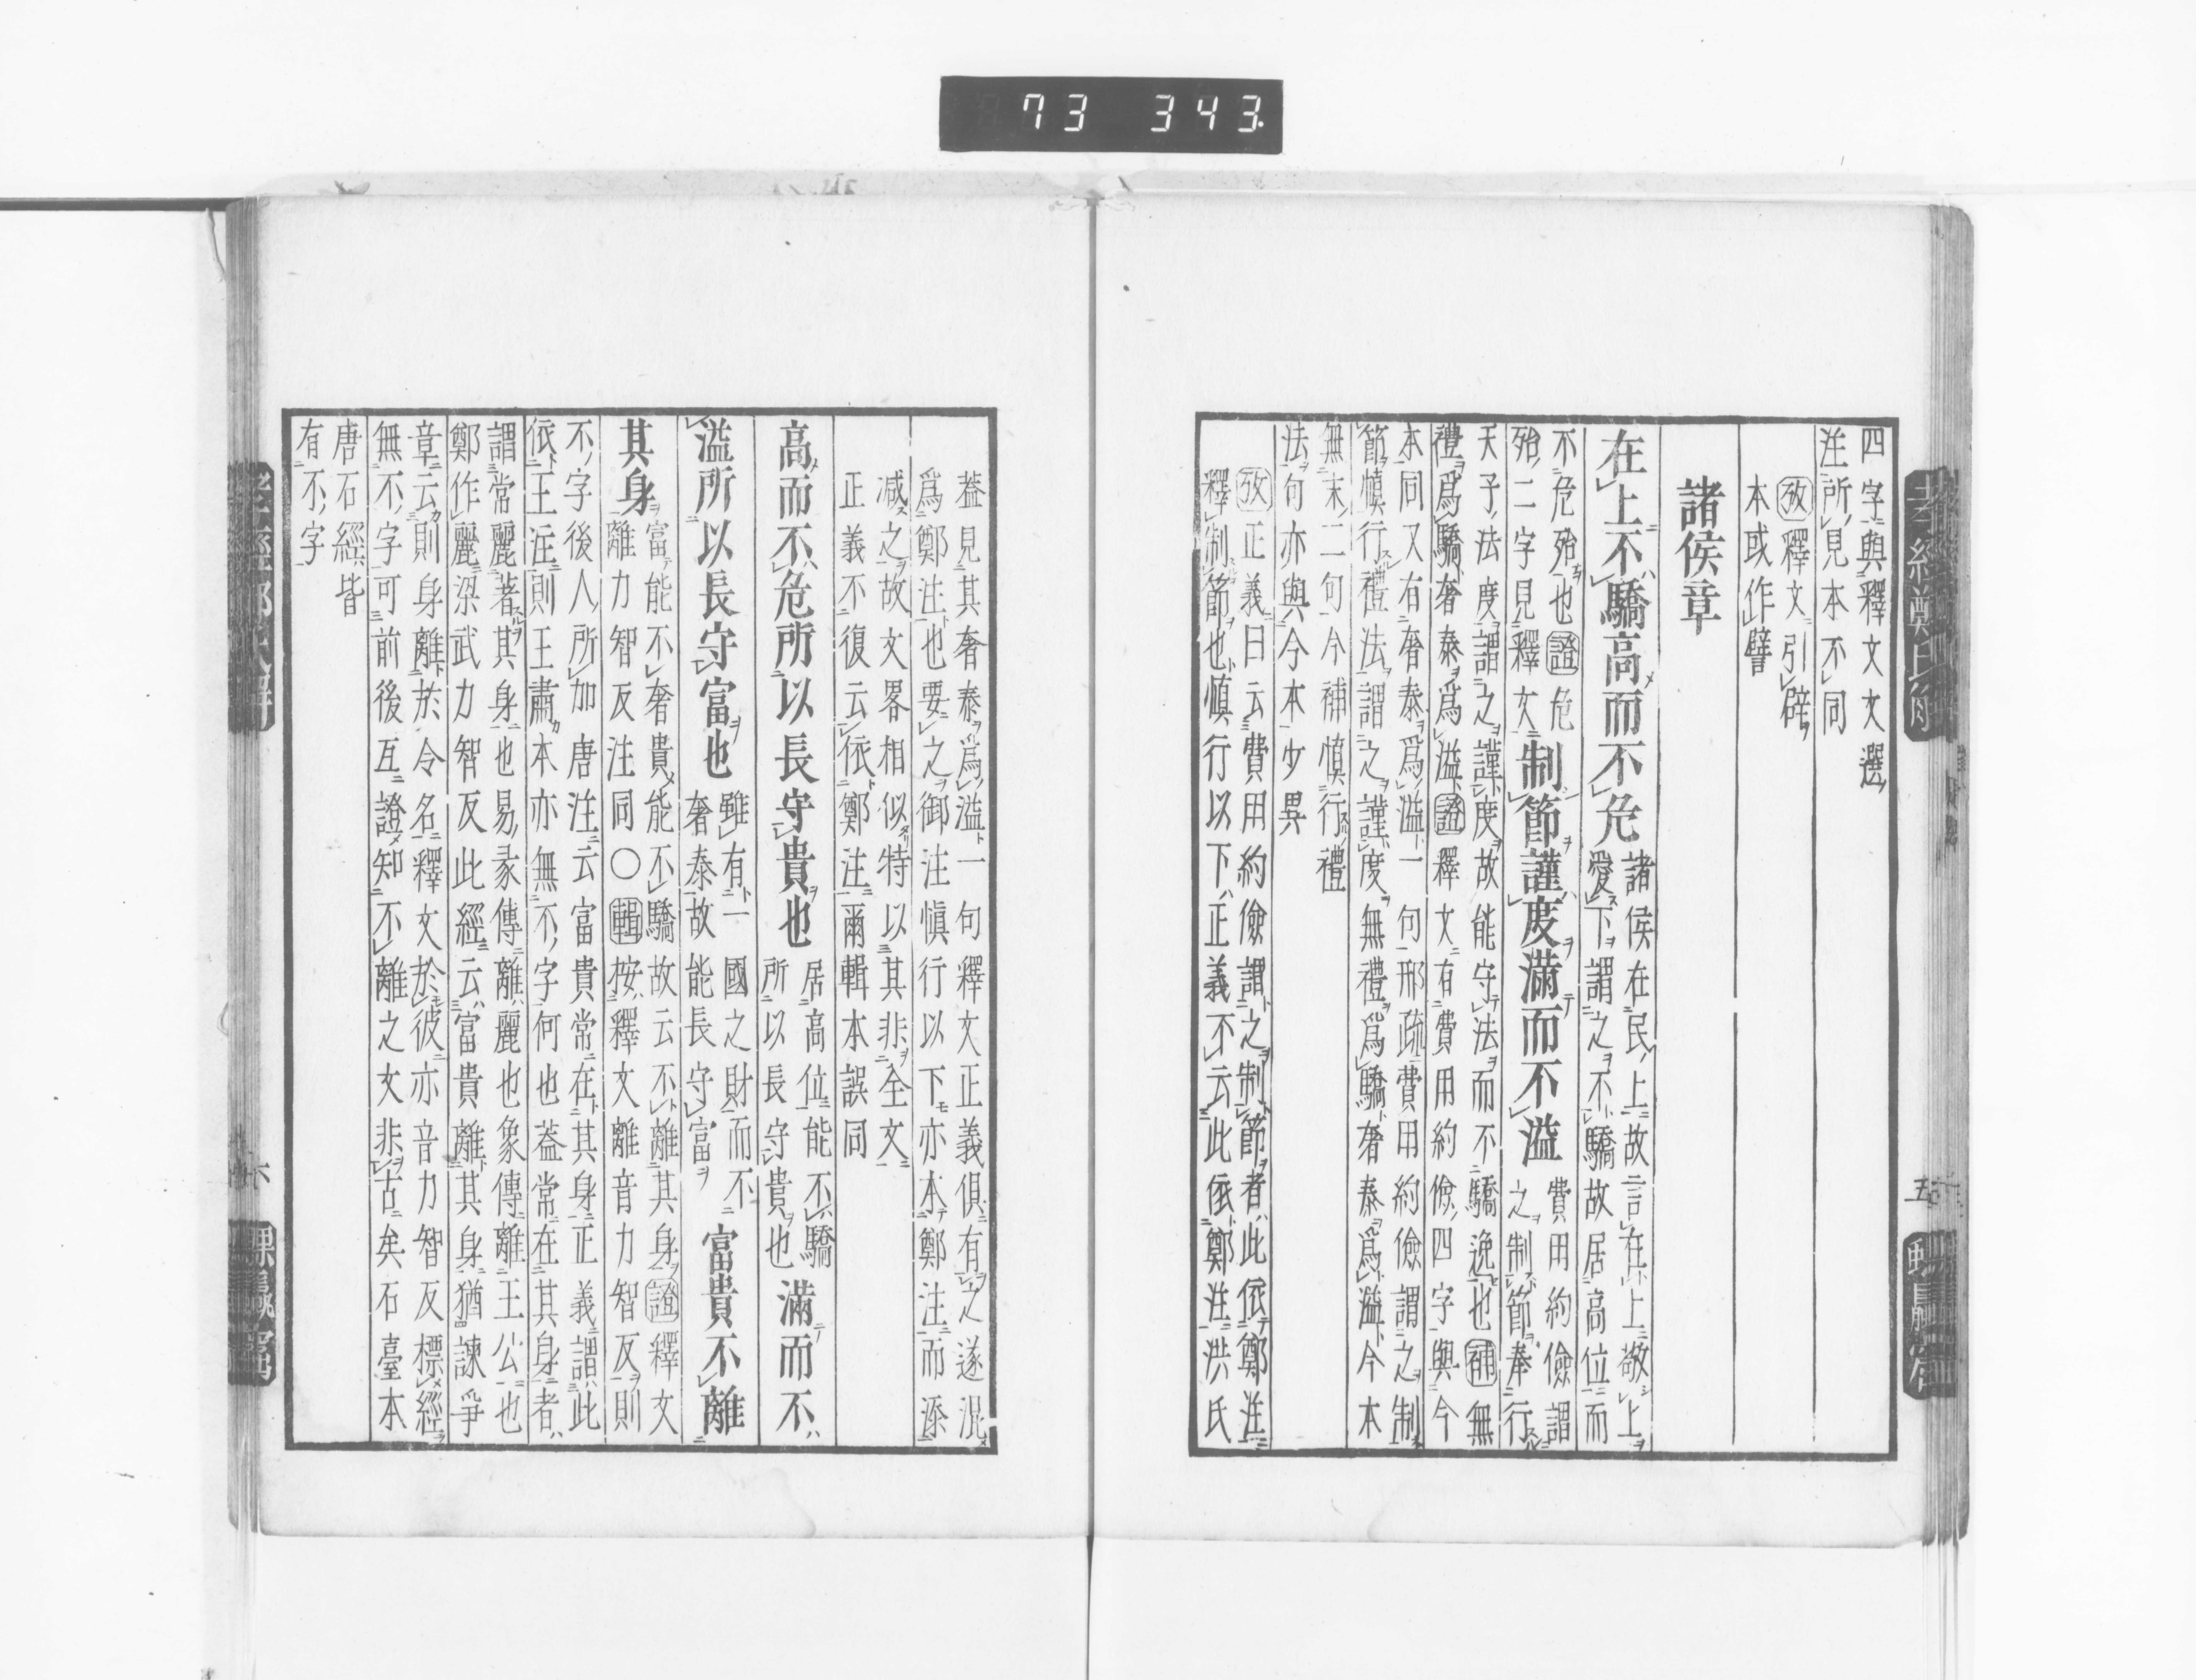 73 343.
四字與釋文文選
注所見本不同
攷釋文引辟
本或作譬
諸侯章
在上不驕高而不危
諸侯在民上故言在上敬上
愛下謂之不驕故居高位而
不危殆也證危
殆二字見釋文
制節謹度滿而不溢
費用約儉謂
之制節奉行
天子法度謂之謹度故能守法而不驕逸也補無
禮爲驕奢泰爲溢證釋文有費用約儉四字與今
本同又有奢泰爲溢一句邢疏費用約儉謂之制
節慎行禮法謂之謹度無禮爲驕奢泰爲溢今本
無末二句今補慎行禮
法句亦與今本少異
攷正義曰云費用約儉謂之制節者此依鄭注
釋制節也慎行以下正義不云此依鄭注洪氏
葢見其奢泰爲溢一句釋文正義俱有之遂混
爲鄭注也要之御注慎行以下亦本鄭注而添
减之故文畧相似特以其非全文
正義不復云依鄭注爾輯本誤同
高而不危所以長守貴也
居高位能不驕
所以長守貴也
滿而不
溢所以長守富也
雖有一國之財而不
奢泰故能長守富
富貴不離
其身
富能不奢貴能不驕故云不離其身證釋文
離力智反注同〇輯按釋文離音力智反則
不字後人所加唐注云富貴常在其身正義謂此
依王注則王肅本亦無不字何也葢常在其身者
謂常麗著其身也易彖傳離麗也象傳離王公也
鄭作麗梁武力智反此經云富貴離其身猶諫爭
章云則身離於令名釋文於彼亦音力智反標經
無不字可前後互證知不離之文非古矣石臺本
唐石經皆
有不字